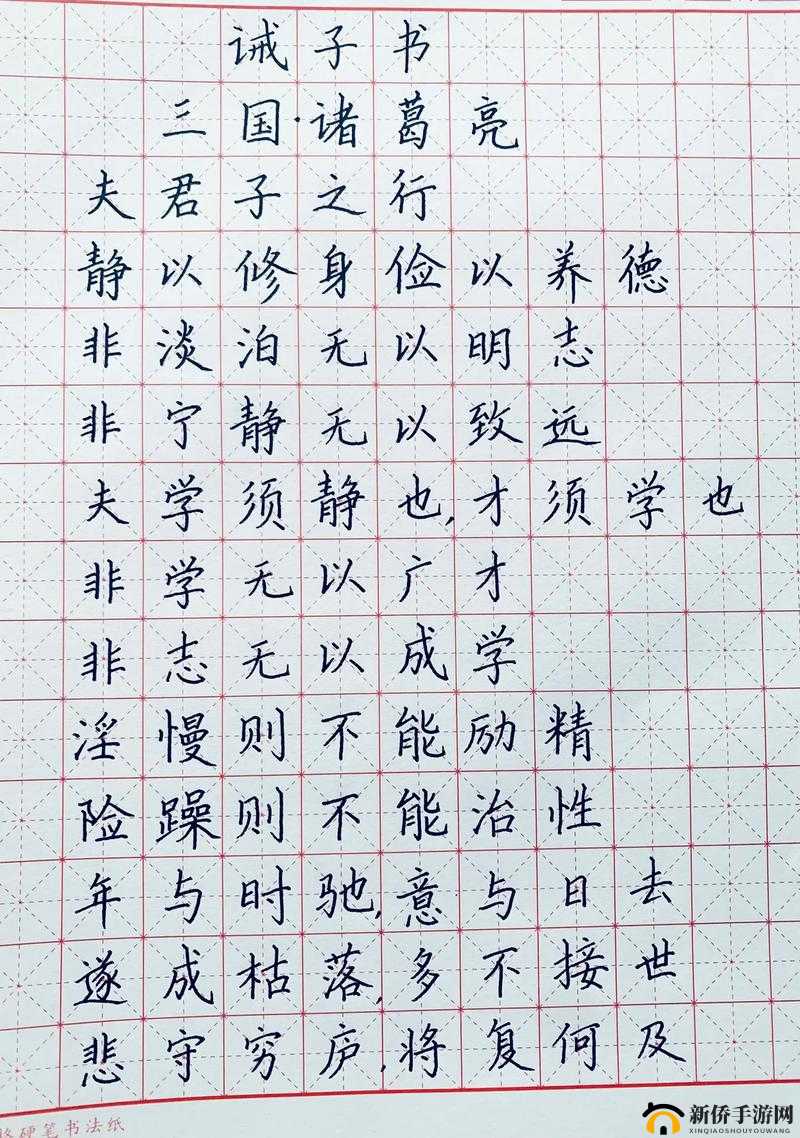 诫子书
三国·诸葛亮
夫君子之行
静以修身俭以养德
非淡泊无以明志
非宁静无以致远
夫学须静也,才须学也
非学无以广才
非志无以成学
淫慢则不能励精
险躁则不能治性
年与时驰,意与日去
遂成枯落,多不接世
悲守穷庐,将复何及
硬笔书法纸
新侨手游网
XINQIAOSHOUYOUWANG